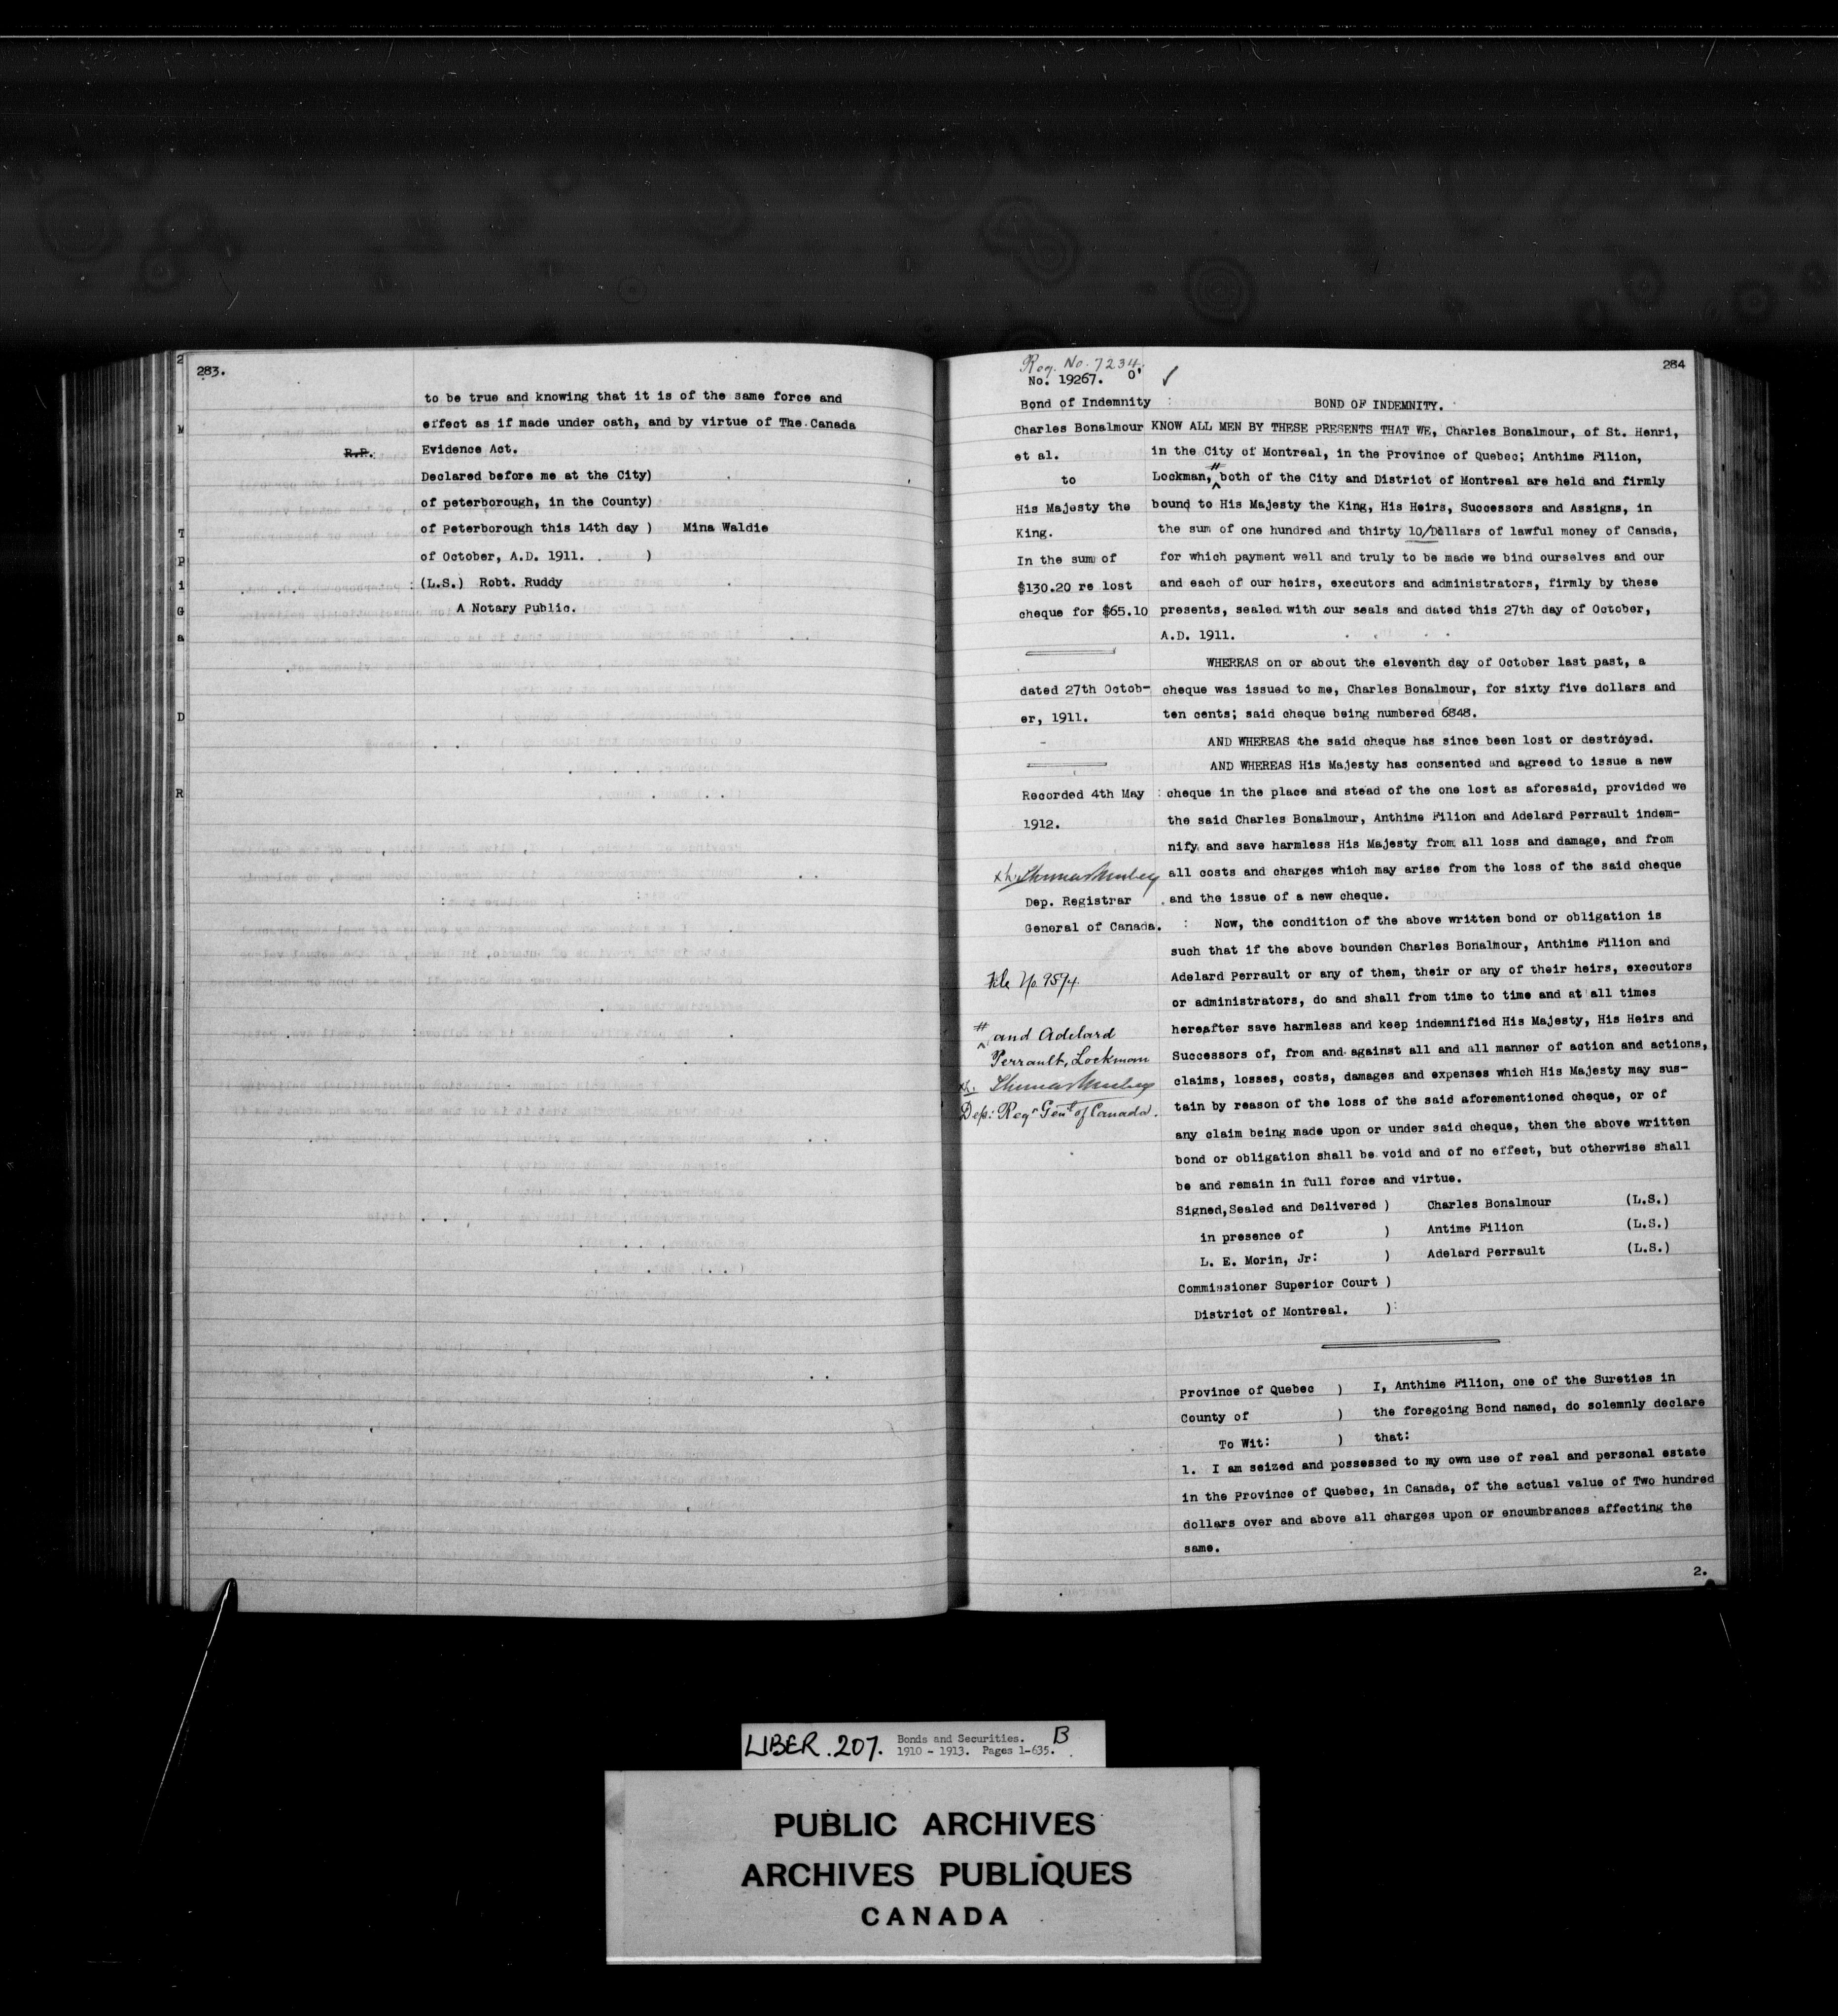 283.
to be true and knowing that it is of the same force and
effect as if made under oath, and by virtue of The Canada
R.P.
Evidence Act.
Declared before me at the City)
of peterborough, in the County)
of Peterborough this 14th day ) Mina Waldie
of October, A.D. 1911. )
(L.S.) Robt. Ruddy
A Notary Public.
2
M
T
p
i
G
a
D
R
284
Reg. No. 7234.
No. 19267. O'
Bond of Indemnity
Charles Bonalmour
et al.
to
His Majesty the
King.
In the sum of
$130.20 re lost
cheque for $65.10
dated 27th Octob-
er, 1911.
Recorded 4th May
1912.
Dep. Registrar
General of Canada.
File No 9594.
# and Adelard
Perrault, Lockmom
Dep: Regr Genl of Canada.
BOND OF INDEMNITY.
KNOW ALL MEN BY THESE PRESENTS THAT WE, Charles Bonalmour, of St. Henri,
in the City of Montreal, in the Province of Quebec; Anthime Filion,
Lockman, # both of the City and District of Montreal are held and firmly
bound to His Majesty the King, His Heirs, Successors and Assigns, in
the sum of one hundred and thirty 10/Dollars of lawful money of Canada,
for which payment well and truly to be made we bind ourselves and our
and each of our heirs, executors and administrators, firmly by these
presents, sealed with our seals and dated this 27th day of October,
A.D. 1911.
WHEREAS on or about the eleventh day of October last past, a
cheque was issued to me, Charles Bonalmour, for sixty five dollars and
ten cents; said cheque being numbered 6848.
AND WHEREAS the said cheque has since been lost or destroyed.
AND WHEREAS His Majesty has consented and agreed to issue a new
cheque in the place and stead of the one lost as aforesaid, provided we
the said Charles Bonalmour, Anthime Filion and Adelard Perrault indem-
nify and save harmless His Majesty from all loss and damage, and from
all costs and charges which may arise from the loss of the said cheque
and the issue of a new cheque.
Now, the condition of the above written bond or obligation is
such that if the above bounden Charles Bonalmour, Anthime Filion and
Adelard Perrault or any of them, their or any of their heirs, executors
or administrators, do and shall from time to time and at all times
hereafter save harmless and keep indemnified His Majesty, His Heirs and
Successors of, from and against all and all manner of action and actions,
claims, losses, costs, damages and expenses which His Majesty may sus-
tain by reason of the loss of the said aforementioned cheque, or of
any claim being made upon or under said cheque, then the above written
bond or obligation shall be void and of no effect, but otherwise shall
be and remain in full force and virtue.
Signed,Sealed and Delivered ) Charles Bonalmour (L.S.)
in presence of ) Antime Filion (L.S.)
L. E. Morin, Jr: ) Adelard Perrault (L.S.)
Commissioner Superior Court )
District of Montreal. )
Province of Quebec ) I, Anthime Filion, one of the Sureties in
County of ) the foregoing Bond named, do solemnly declare
To Wit: ) that:
1. I am seized and possessed to my own use of real and personal estate
in the Province of Quebec, in Canada, of the actual value of Two hundred
dollars over and above all charges upon or encumbrances affecting the
same.
2.
LIBER.207. Bonds and Securities. B
1910 - 1913. Pages 1-635.
PUBLIC ARCHIVES
ARCHIVES PUBLIQUES
CANADA